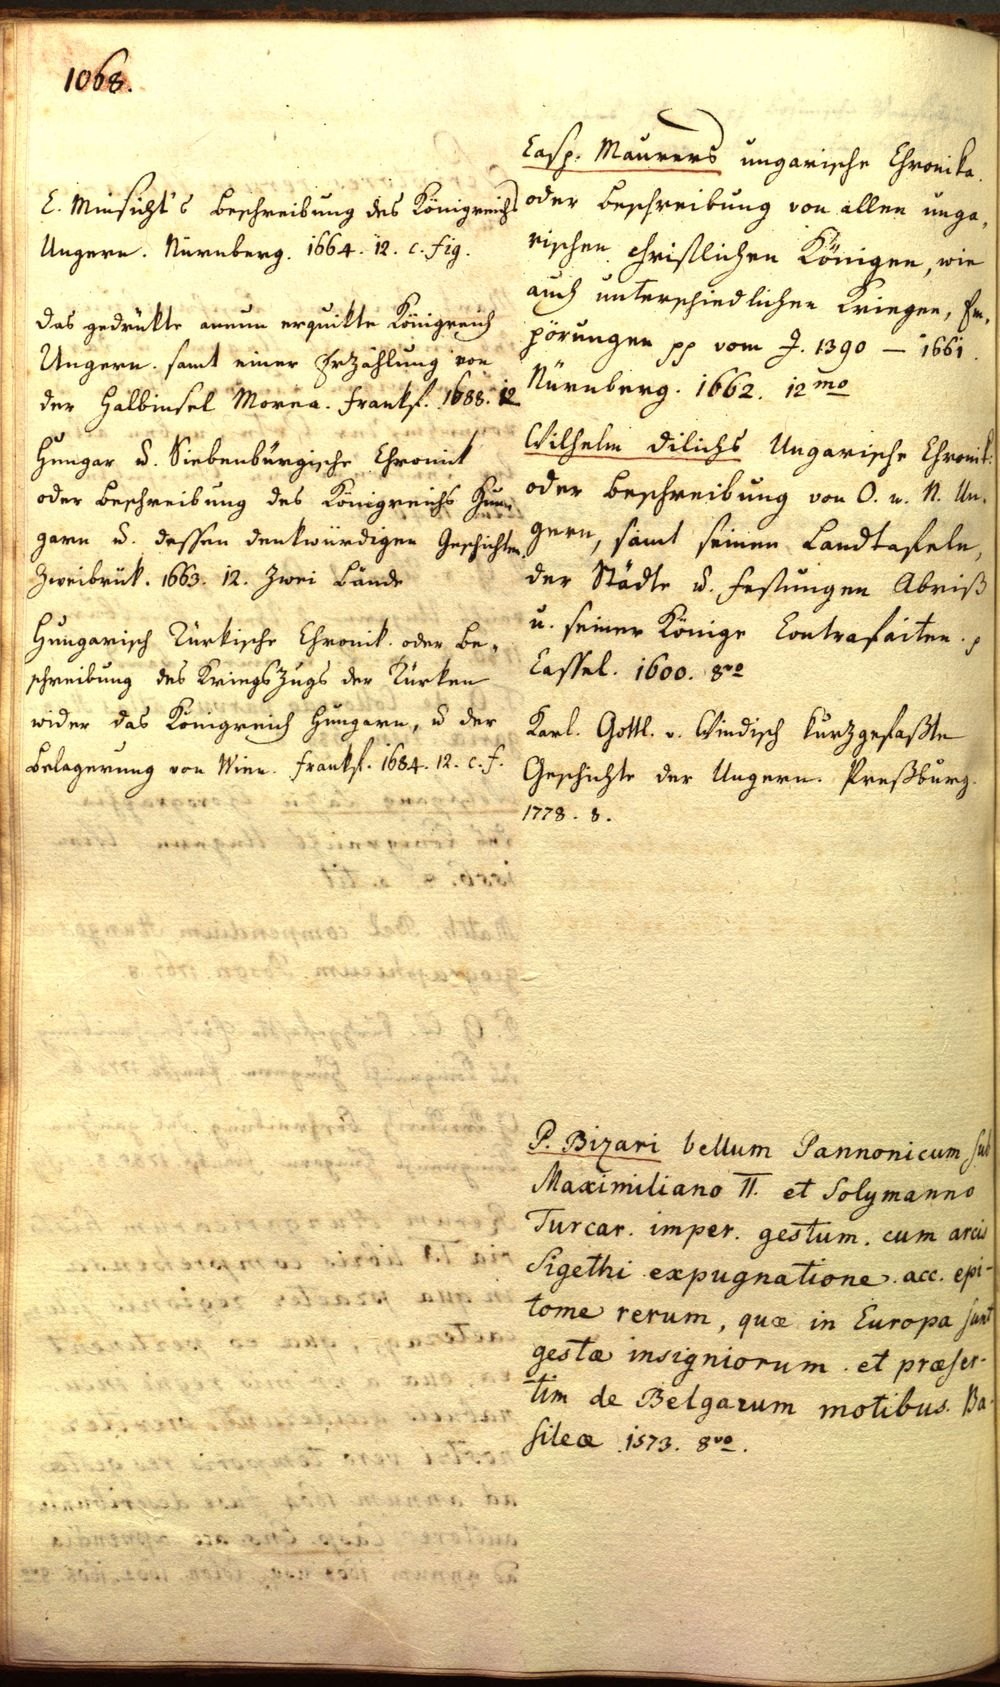 1068.
E. Minsicht's Beschreibung des Königreichs
Ungern. Nürnberg. 1664. 12. c. fig.
Das gedrükte annun erquikte Königreich
Ungern. samt einer Erzählung von
der Halbinsel Morea. Frankf. 1688. 12
Hungar u. Siebenbürgische Chronik
oder Beschreibung des Königreichs Hun-
garn u. dessen denkwürdigen Geschichten
Zweibrük. 1663. 12. Zwei Bände
Hungarisch Türkische Chronik. oder Be-
schreibung des Kriegszugs der Türken
wider das Königreich Hungarn, u der
Belagerung von Wien. Frankf. 1684. 12. c. f.
Casp. Maurers ungarische Chronika.
oder Beschreibung von allen unga-
rischen christlichen Königen, wie
auch unterschiedlichen Kriegen, Em-
pörungen pp vom J. 1390 — 1661.
Nürnberg. 1662. 12mo
Wilhelm Dilichs Ungarische Chronik.
oder Beschreibung von O. u. N. Un-
gern, samt seinen Landtafeln,
der Städte u. Festungen Abriß
u. seiner Könige Contrafaiten. p
Cassel. 1600. 8vo
Karl. Gottl. v. Windisch kurzgefaßte
Geschichte der Ungern. Preßburg.
1778. 8.
P. Bizari bellum Pannonicum sub
Maximiliano II. et Solymanno
Turcar. imper. gestum. cum arcis
Sigethi expugnatione. acc. epi-
tome rerum, quæ in Europa sunt
gestæ insigniorum. et præser-
tim de Belgarum motibus. Ba-
sileæ. 1573. 8vo.